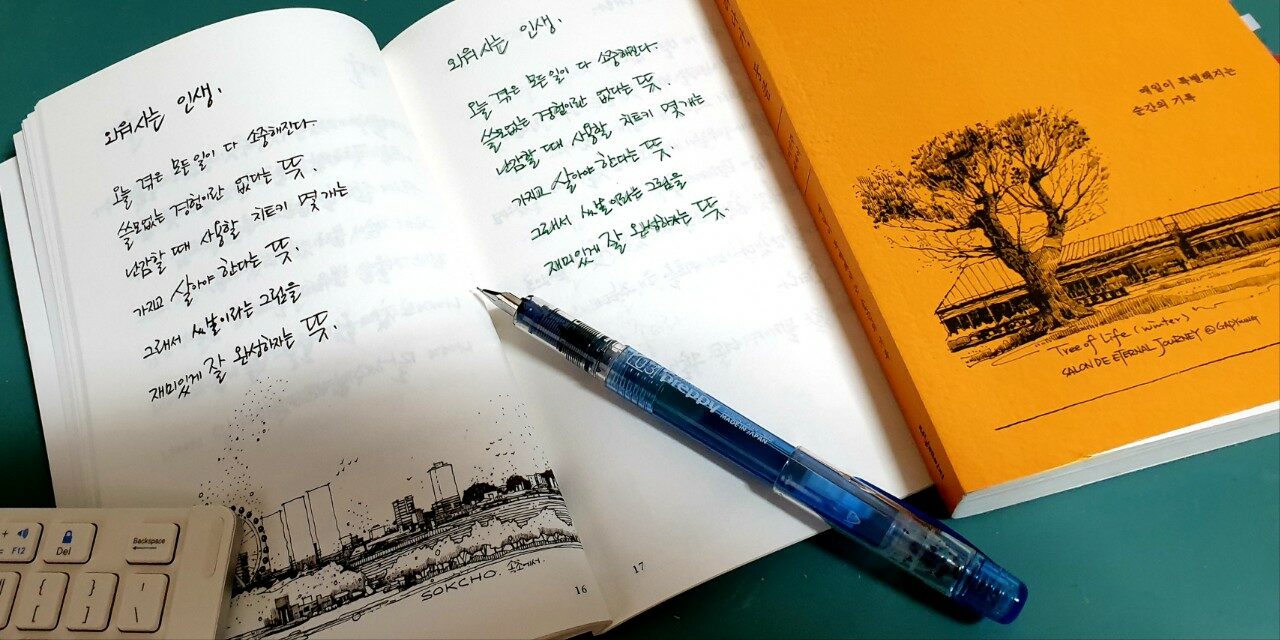 외워사는 인생.
오늘 겪은 모든 일이 다 소중해진다.
쓸모없는 경험이란 없다는 뜻.
난감할 때 사용할 치트키 몇 개는
가지고 살아야 한다는 뜻.
그래서 씨날이라는 그림을
재미있게 잘 완성하자는 뜻.
SOKCHO. 속초에서.
16
외워사는 인생.
오늘 겪은 모든 일이 다 소중해진다.
쓸모없는 경험이란 없다는 뜻.
난감할 때 사용할 치트키 몇 개는
가지고 살아야 한다는 뜻.
그래서 씨날이라는 그림을
재미있게 잘 완성하자는 뜻.
17
03 preppy
MADE IN JAPAN
매일이 특별해지는
순간의 기록
Tree of Life (winter)
SALON DE ETERNAL JOURNEY @ GAPYUNG
+
= F12
Del
Backspace
{
[
}
]